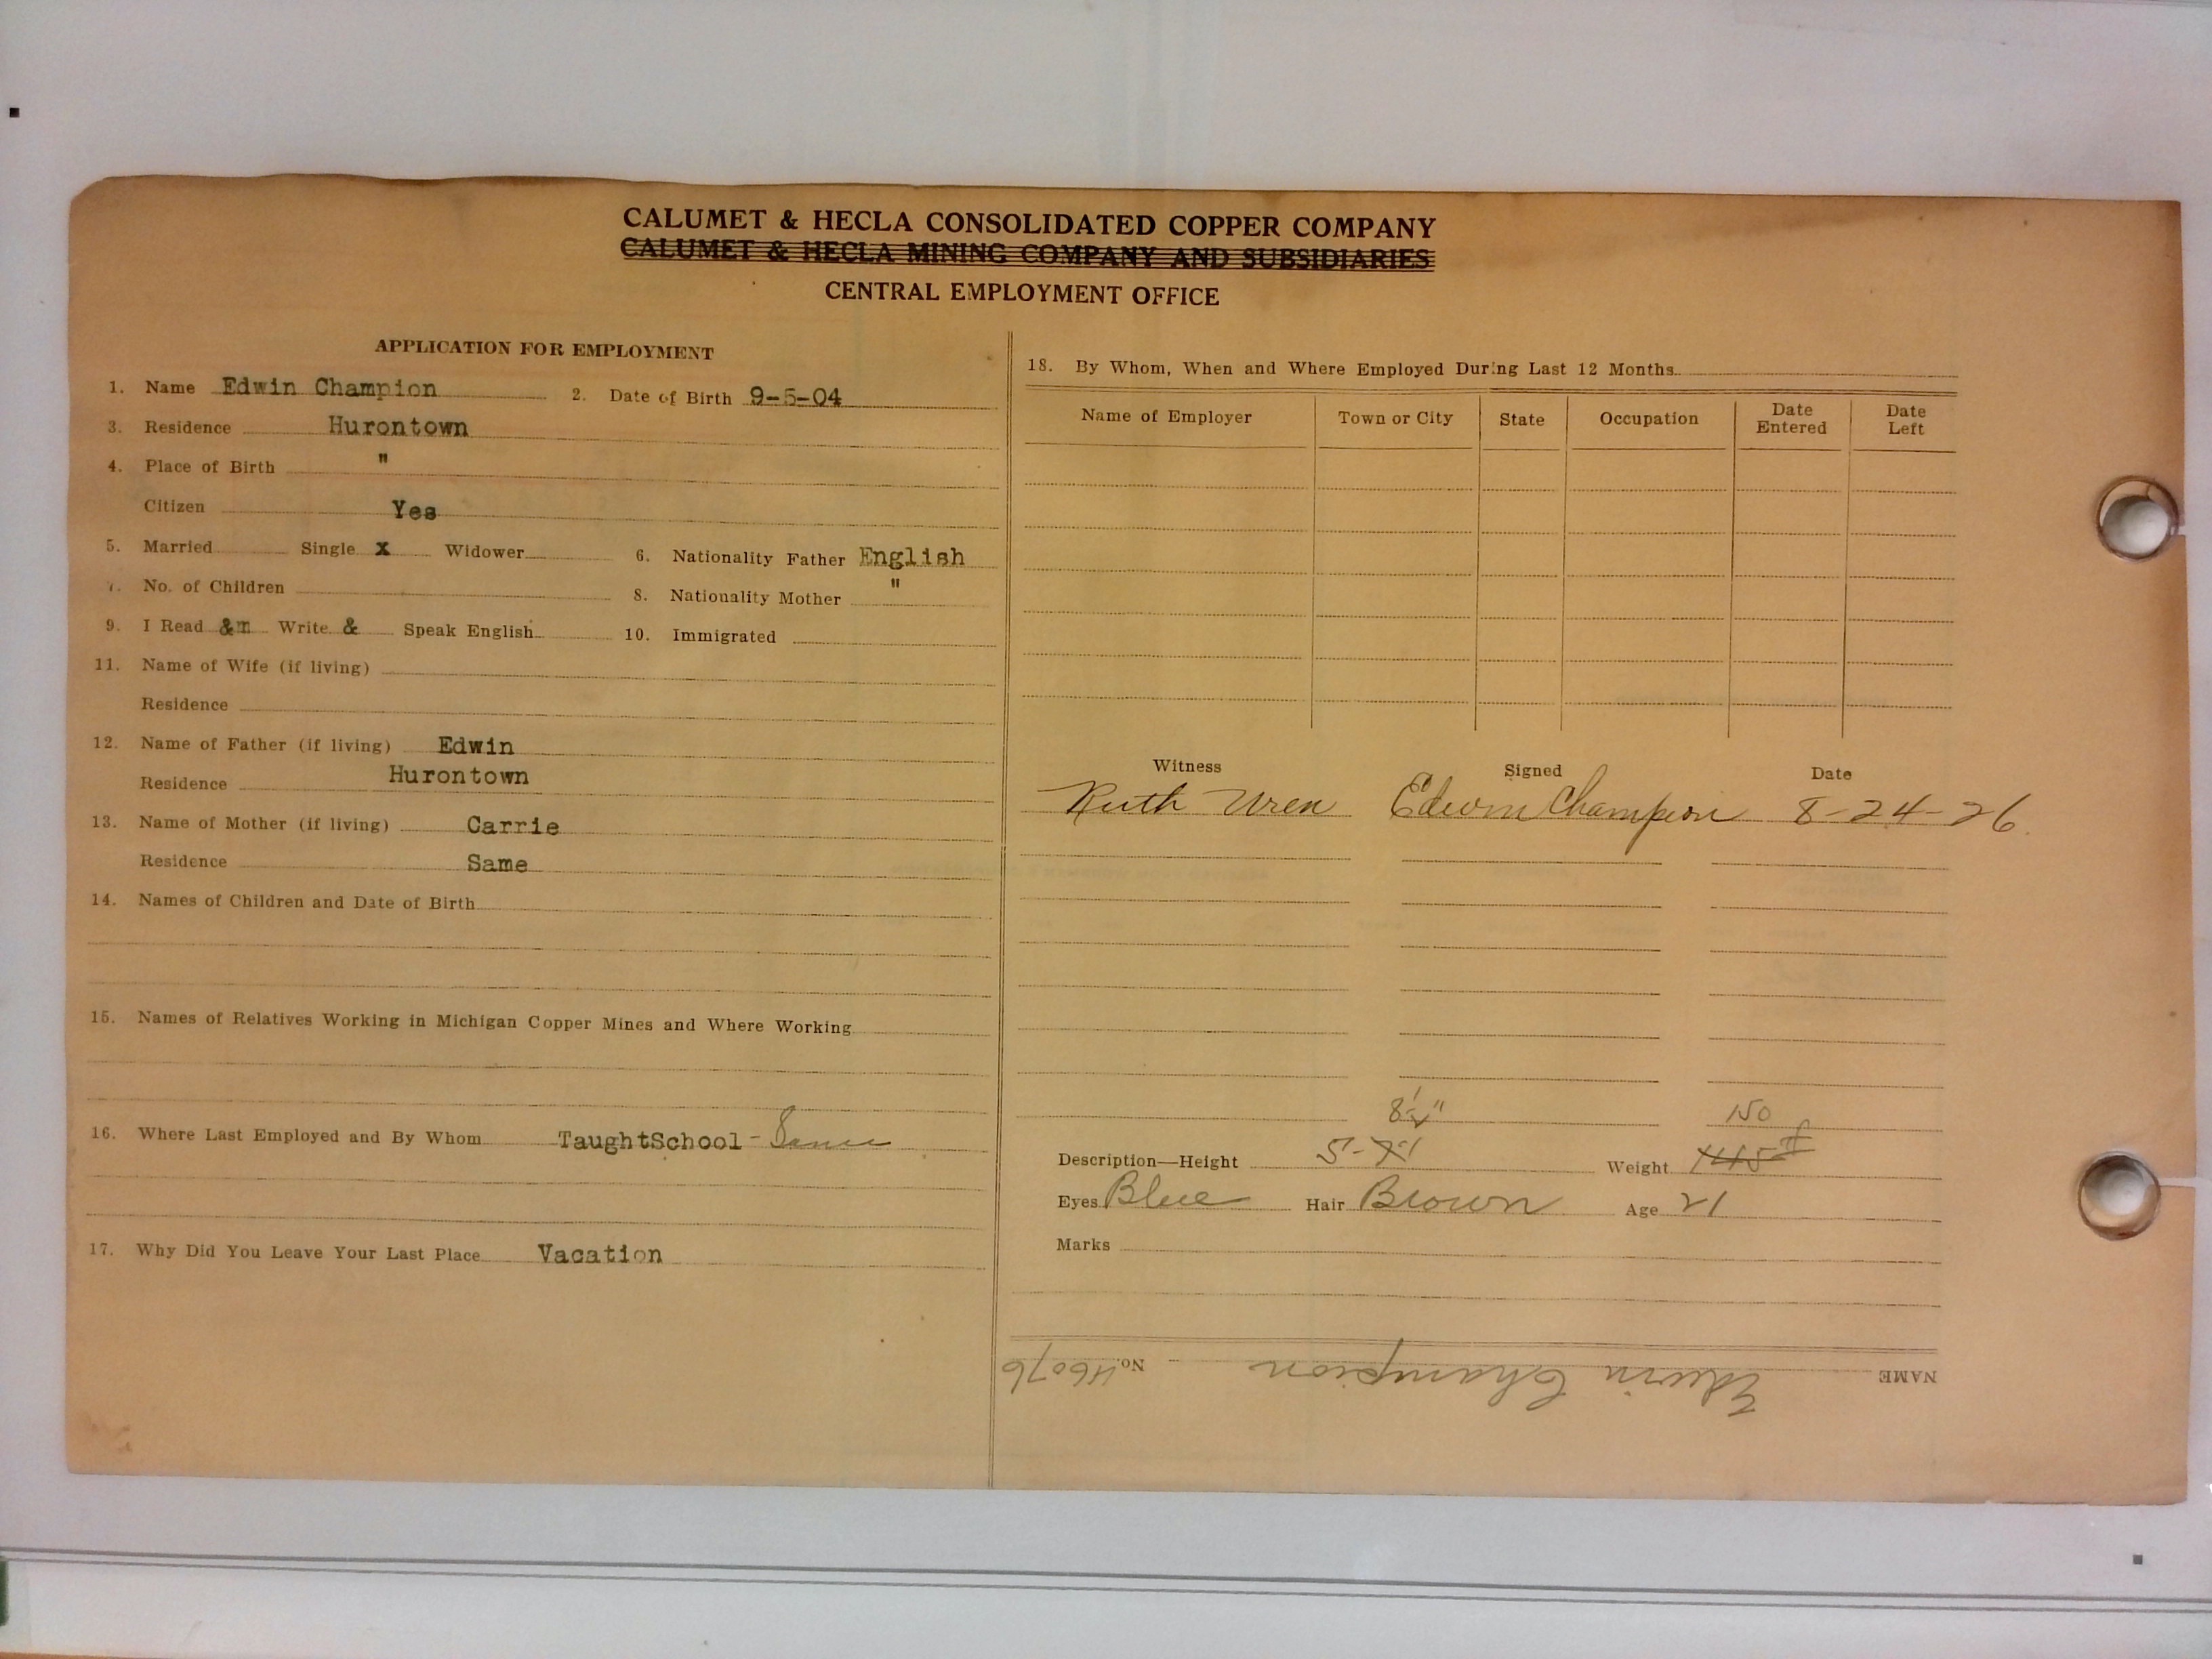 CALUMET & HECLA CONSOLIDATED COPPER COMPANY
CALUMET & HECLA MINING COMPANY AND SUBSIDIARIES
CENTRAL EMPLOYMENT OFFICE
APPLICATION FOR EMPLOYMENT
1. Name Edwin Champion 2. Date of Birth 9-5-04
3. Residence Hurontown
4. Place of Birth "
Citizen Yes
5. Married Single x Widower 6. Nationality Father English
7. No. of Children 8. Nationality Mother "
9. I Read & Write & Speak English 10. Immigrated
11. Name of Wife (if living)
Residence
12. Name of Father (if living) Edwin
Residence Hurontown
13. Name of Mother (if living) Carrie
Residence Same
14. Names of Children and Date of Birth
15. Names of Relatives Working in Michigan Copper Mines and Where Working
16. Where Last Employed and By Whom TaughtSchool -
17. Why Did You Leave Your Last Place Vacation
18. By Whom, When and Where Employed During Last 12 Months
Name of Employer Town or City State Occupation Date Entered Date Left
Witness Signed Date
Ruth Uren Edwin Champion 8-24-26
8½" 150
Description—Height 5'- Weight 145#
Eyes Blue Hair Brown Age 21
Marks
NAME Edwin Champion No. 46076